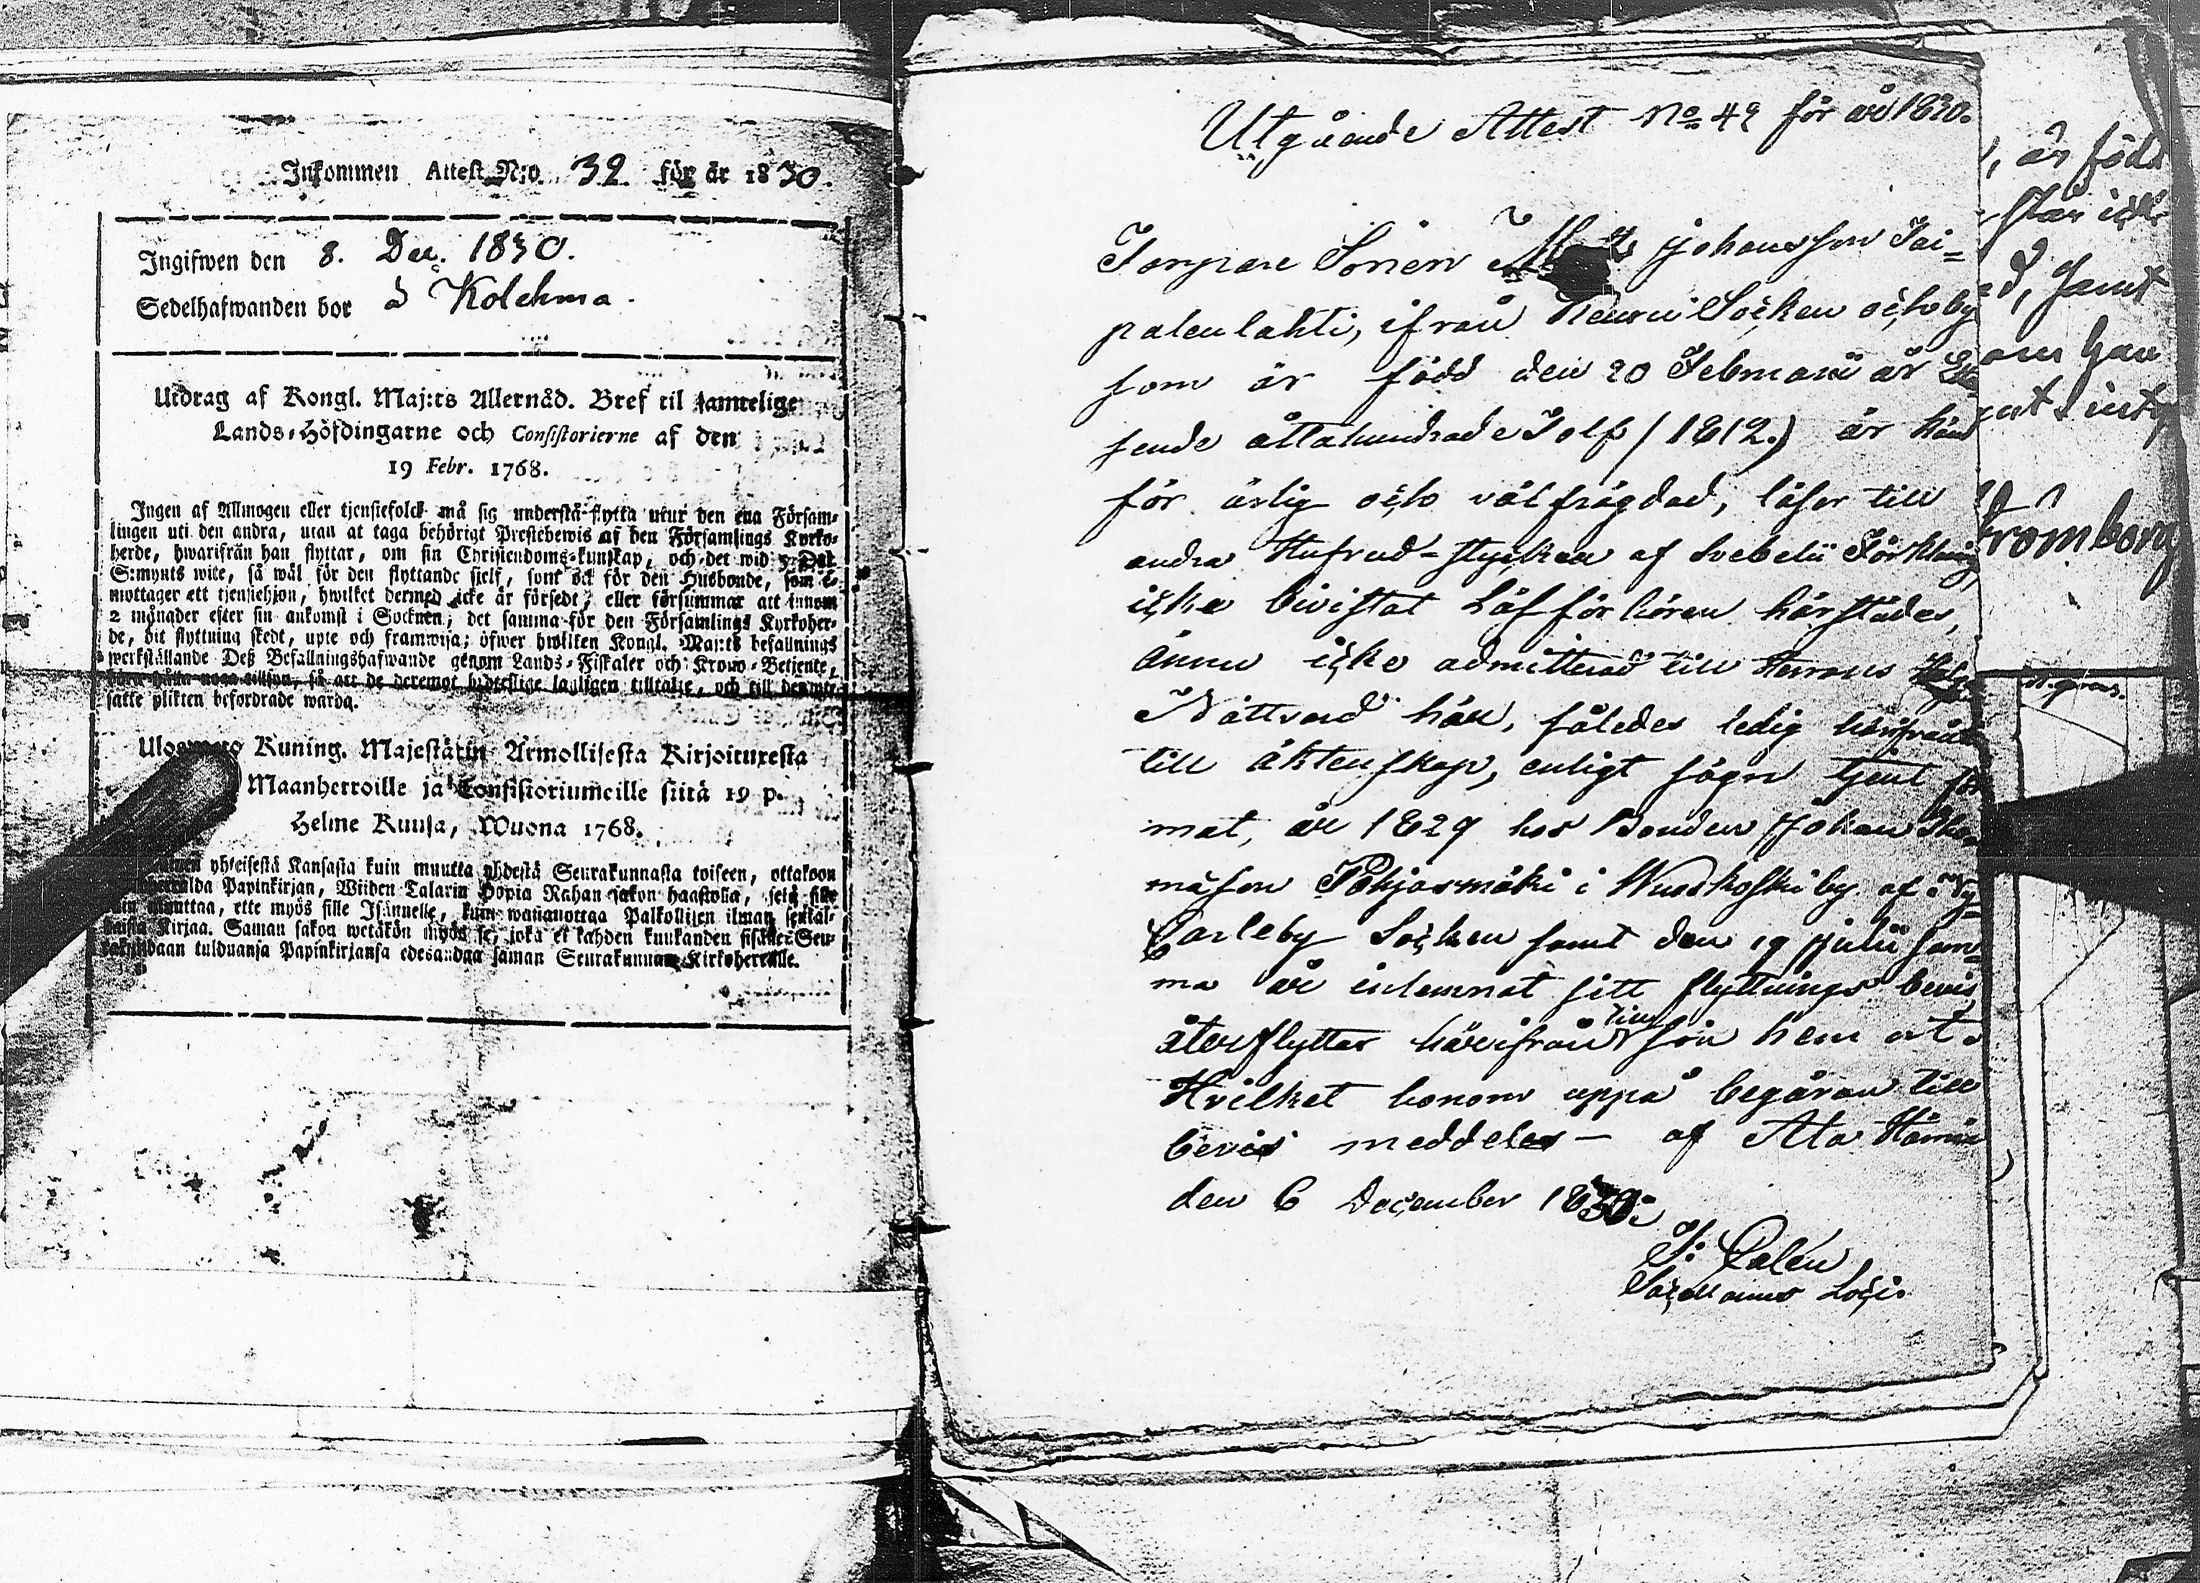 Inkommen Attest N:o. 32 för år 1830.
Ingifwen den 8. Dec. 1830.
Sedelhafwanden bor å Kolehma.
Utdrag af Kongl. Maj:ts Allernåd. Bref til samtelige
Lands-Höfdingarne och Consistorierne af den
19 Febr. 1768.
Ingen af Allmogen eller tjenstefolck må sig understå flytta utur den ena Försam-
lingen uti den andra, utan at taga behörigt Prestebewis af den Församlings Kyrko-
herde, hwarifrån han flyttar, om sin Christendoms-kunskap, och det wid 5 Dal.
S:mynts wite, så wäl för den flyttande sjelf, som ock för den Husbonde, som e-
mottager ett tjenstehjon, hwilket dermed icke är försedt, eller försummar att innom
2 månader efter sin ankomst i Socknen, det samma för den Församlings Kyrkoher-
de, dit flyttning skedt, upte och framwisa; öfwer hwilken Kongl. Maj:ts befallnings
werkställande Deß Befallningshafwande genom Lands-Fiskaler och Krono-Betjente,
böra hålla noga tillsyn, så att de deremot brottslige lagligen tilltalte, och till den ut-
satte plikten befordrade warda.
Ulosweto Kuning. Majestätin Armollisesta Kirjoituxesta
Maanherroille ja Consistoriumeille siitä 19 p.
Helme Kuusa, Wuona 1768.
yhteisestä Kansasta kuin muutta yhdestä Seurakunnasta toiseen, ottakoon
Papinkirjan, Wiiden Talarin Hopia Rahan sakon haastolla, setä sille
muuttaa, ette myös sille Isännelle, kuin wastanottaa Palkollisen ilman senkal-
taista Kirjaa. Saman sakon wetäkön myös se, joka ei kahden kuukauden sisälle Seu-
rakundaan tulduansa Papinkirjansa edesandaa saman Seurakunnan Kirkoherralle.
Utgående Attest No 49 för år 1830.
Torpare Sonen Matts Johansson Tai=
palenlahti, ifrån Keuru Socken och by
som är född den 20 Februarii år
sende åttahundrade Tolf (1812.) är känd
för ärlig och välfrägdad, läser till
andra Hufvud-stycken af Svebelii Förklaring,
icke bivistat Läsförhören härstädes,
ännu icke admitterad till Herrans
Nattvard här, således ledig härifrån
till äktenskap, enligt sägn tjent
mat, år 1829 hos Bonden Johan Tho=
mason Pohjasmäki i Wuoskoski by af Ny=
Carleby Socken samt den 19 Julii sam=
ma år inlemnat sitt flyttnings bevis,
återflyttar härifrån till sin hem ort.
Hvilket honom uppå begäran till
bevis meddeles – af Ala Härmä
den 6 December 1830.
J: Calen
Sacellanus Loci.
, är född
d, samt
römborg